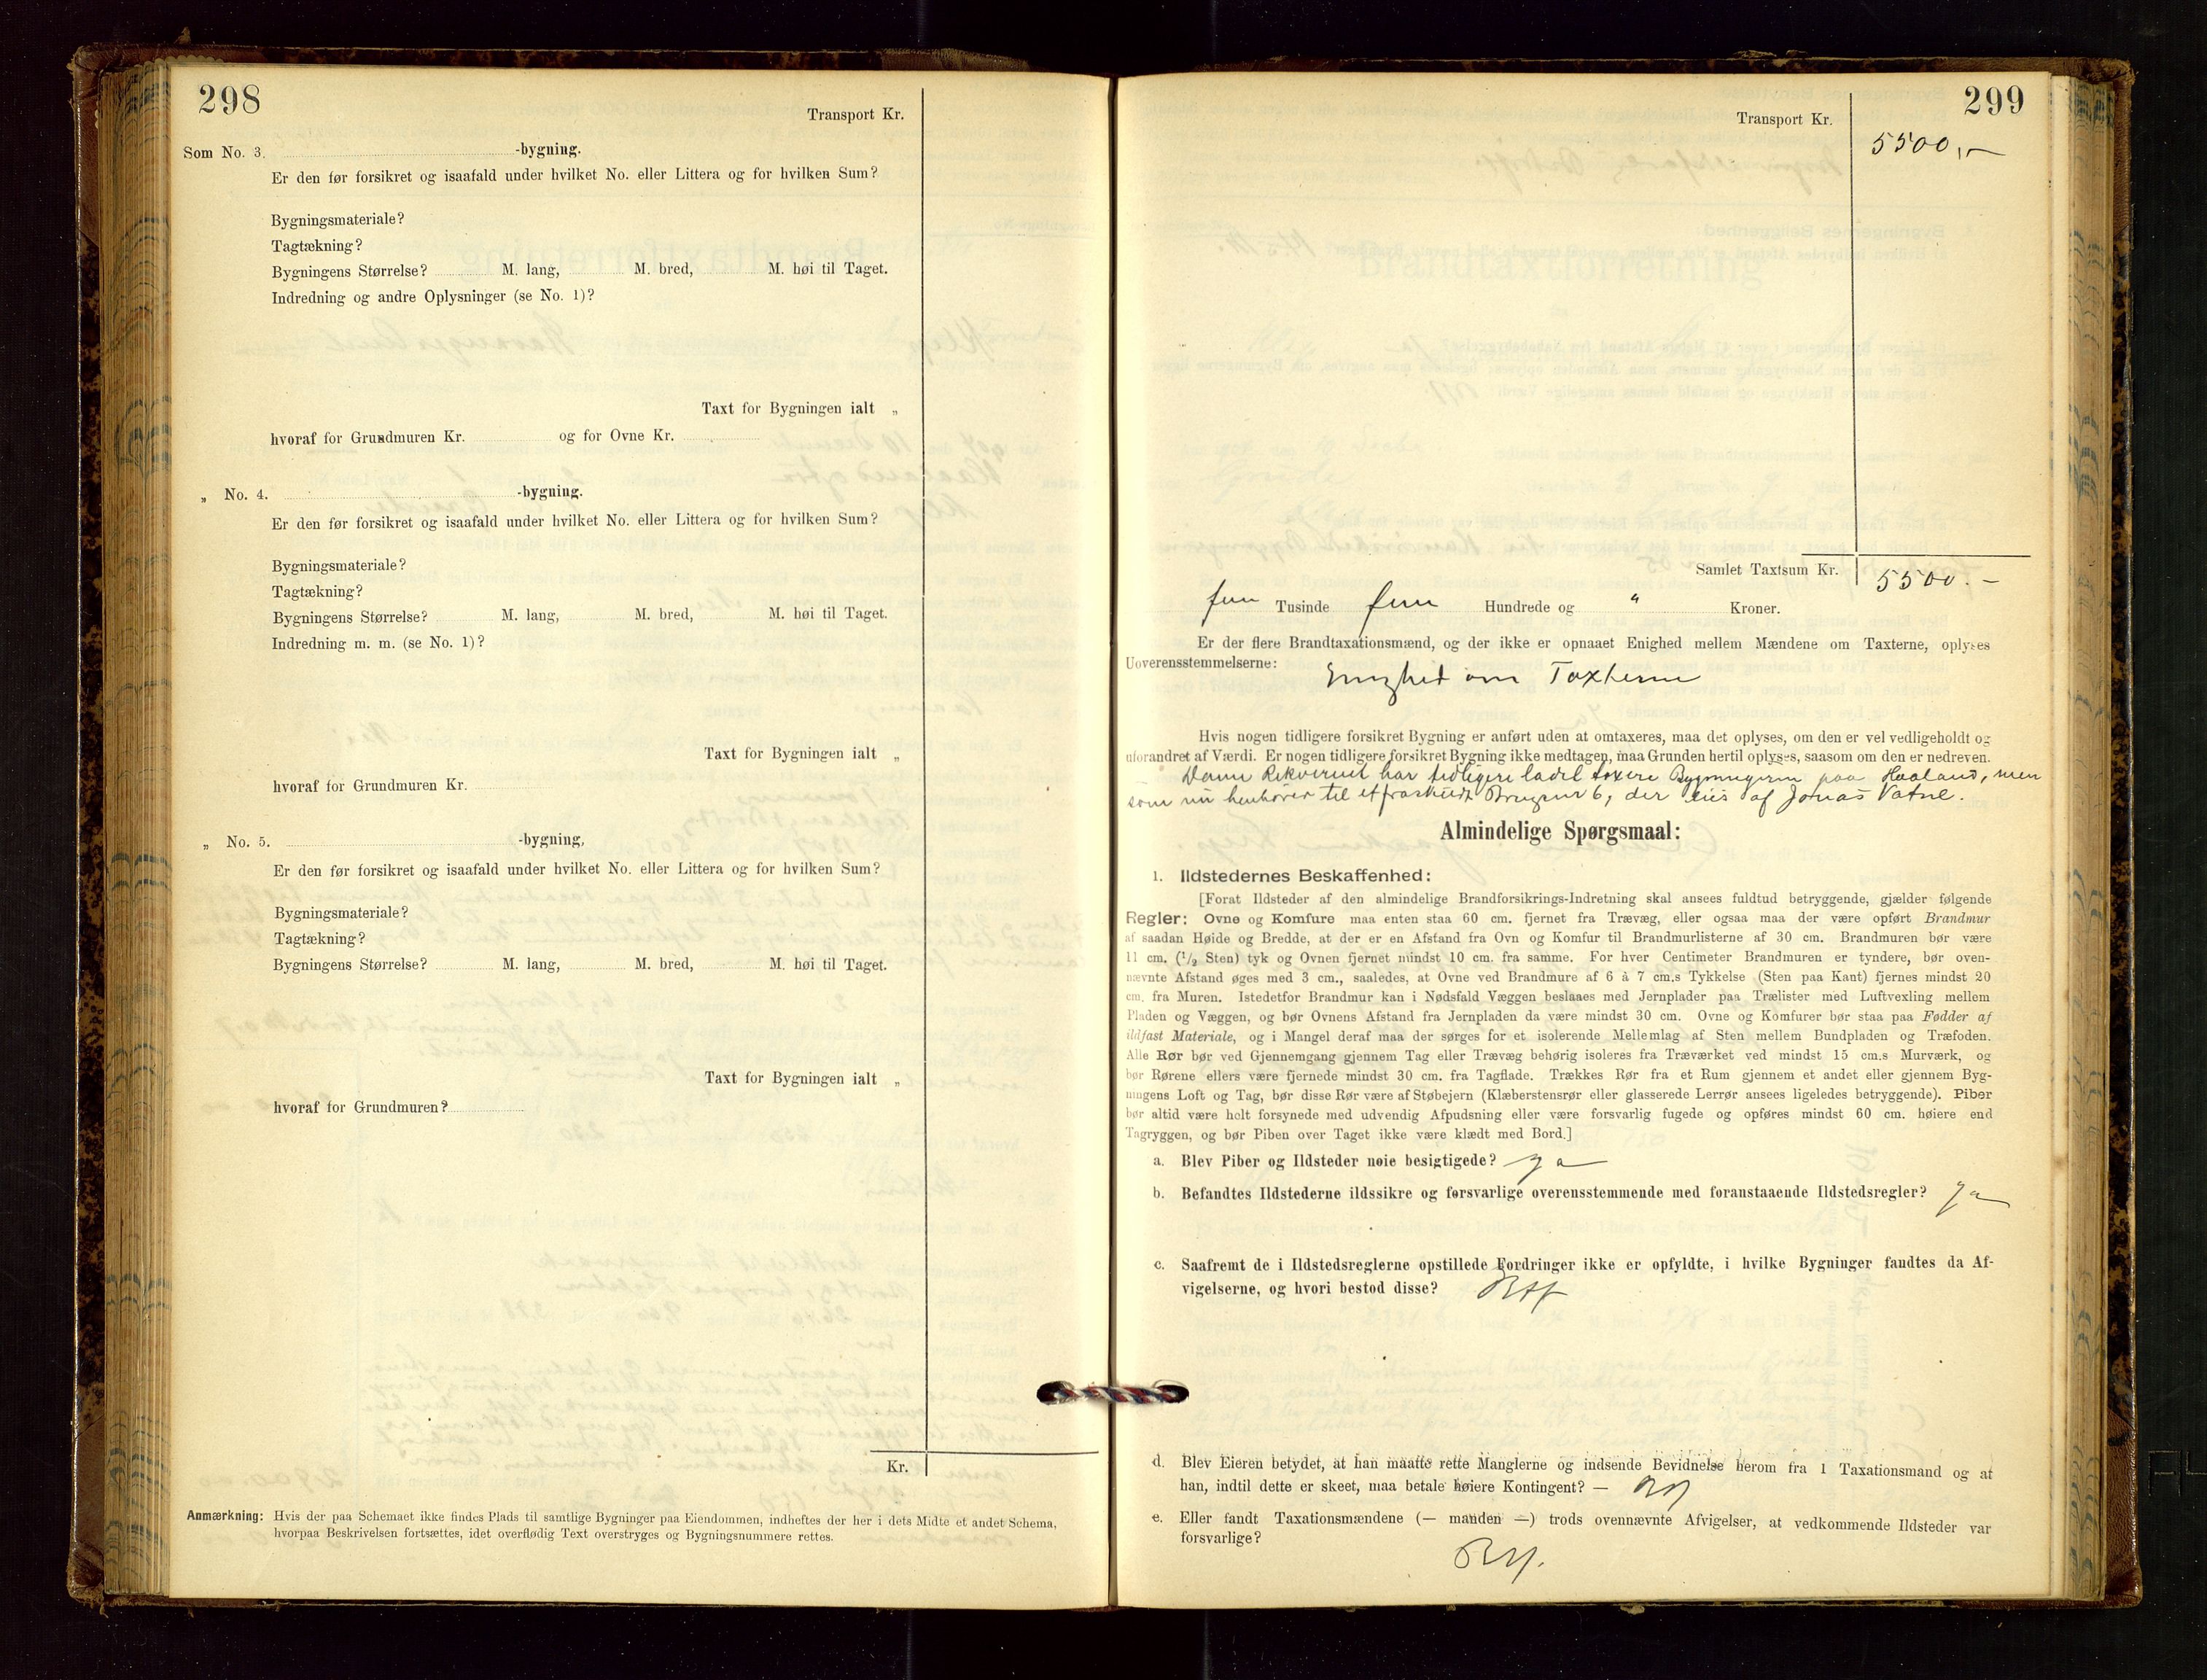 298
Transport Kr.
Som No. 3. -bygning.
Er den før forsikret og isaafald under hvilket No. eller Littera og for hvilken Sum?
Bygningsmateriale?
Tagtækning?
Bygningens Størrelse? M. lang, M. bred, M. høi til Taget.
Indredning og andre Oplysninger (se No. 1)?
Taxt for Bygningen ialt „
hvoraf for Grundmuren Kr. og for Ovne Kr.
„ No. 4. -bygning.
Er den før forsikret og isaafald under hvilket No. eller Littera og for hvilken Sum?
Bygningsmateriale?
Tagtækning?
Bygningens Størrelse? M. lang, M. bred, M. høi til Taget.
Indredning m. m. (se No. 1)?
Taxt for Bygningen ialt „
hvoraf for Grundmuren Kr.
„ No. 5. -bygning,
Er den før forsikret og isaafald under hvilket No. eller Littera og for hvilken Sum?
Bygningsmateriale?
Tagtækning?
Bygningens Størrelse? M. lang, M. bred, M. høi til Taget.
Taxt for Bygningen ialt „
hvoraf for Grundmuren?
Kr.
Anmærkning: Hvis der paa Schemaet ikke findes Plads til samtlige Bygninger paa Eiendommen, indheftes der her i dets Midte et andet Schema,
hvorpaa Beskrivelsen fortsættes, idet overflødig Text overstryges og Bygningsnummere rettes.
299
Transport Kr.
5500,-
Samlet Taxtsum Kr. 5500.-
fem Tusinde fem Hundrede og " Kroner.
Er der flere Brandtaxationsmænd, og der ikke er opnaaet Enighed mellem Mændene om Taxterne, oplyses
Uoverensstemmelserne:
Enighed om Taxterne
Hvis nogen tidligere forsikret Bygning er anført uden at omtaxeres, maa det oplyses, om den er vel vedligeholdt og
uforandret af Værdi. Er nogen tidligere forsikret Bygning ikke medtagen, maa Grunden hertil oplyses, saasom om den er nedreven.
Denne Rekvirent har tidligere ladet taxere Bygningerne paa Haaland, men
som nu henhører til et fraskildt Brugsnr 6, der eies af Jonas Vatne.
Almindelige Spørgsmaal:
1. Ildstedernes Beskaffenhed:
[Forat Ildsteder af den almindelige Brandforsikrings-Indretning skal ansees fuldtud betryggende, gjælder følgende
Regler: Ovne og Komfure maa enten staa 60 cm. fjernet fra Trævæg, eller ogsaa maa der være opført Brandmur
af saadan Høide og Bredde, at der er en Afstand fra Ovn og Komfur til Brandmurlisterne af 30 cm. Brandmuren bør være
11 cm. (1/2 Sten) tyk og Ovnen fjernet mindst 10 cm. fra samme. For hver Centimeter Brandmuren er tyndere, bør oven-
nævnte Afstand øges med 3 cm., saaledes, at Ovne ved Brandmure af 6 à 7 cm.s Tykkelse (Sten paa Kant) fjernes mindst 20
cm. fra Muren. Istedetfor Brandmur kan i Nødsfald Væggen beslaaes med Jernplader paa Trælister med Luftvexling mellem
Pladen og Væggen, og bør Ovnens Afstand fra Jernpladen da være mindst 30 cm. Ovne og Komfurer bør staa paa Fødder af
ildfast Materiale, og i Mangel deraf maa der sørges for et isolerende Mellemlag af Sten mellem Bundpladen og Træfoden.
Alle Rør bør ved Gjennemgang gjennem Tag eller Trævæg behørig isoleres fra Træværket ved mindst 15 cm.s Murværk, og
bør Rørene ellers være fjernede mindst 30 cm. fra Tagflade. Trækkes Rør fra et Rum gjennem et andet eller gjennem Byg-
ningens Loft og Tag, bør disse Rør være af Støbejern (Klæberstensrør eller glasserede Lerrør ansees ligeledes betryggende). Piber
bør altid være helt forsynede med udvendig Afpudsning eller være forsvarlig fugede og opføres mindst 60 cm. høiere end
Tagryggen, og bør Piben over Taget ikke være klædt med Bord.]
a. Blev Piber og Ildsteder nøie besigtigede? ja
b. Befandtes Ildstederne ildssikre og forsvarlige overensstemmende med foranstaaende Ildstedsregler? ja
c. Saafremt de i Ildstedsreglerne opstillede Fordringer ikke er opfyldte, i hvilke Bygninger fandtes da Af-
vigelserne, og hvori bestod disse?
d. Blev Eieren betydet, at han maatte rette Manglerne og indsende Bevidnelse herom fra 1 Taxationsmand og at
han, indtil dette er skeet, maa betale høiere Kontingent? —
e. Eller fandt Taxationsmændene (— manden —) trods ovennævnte Afvigelser, at vedkommende Ildsteder var
forsvarlige?